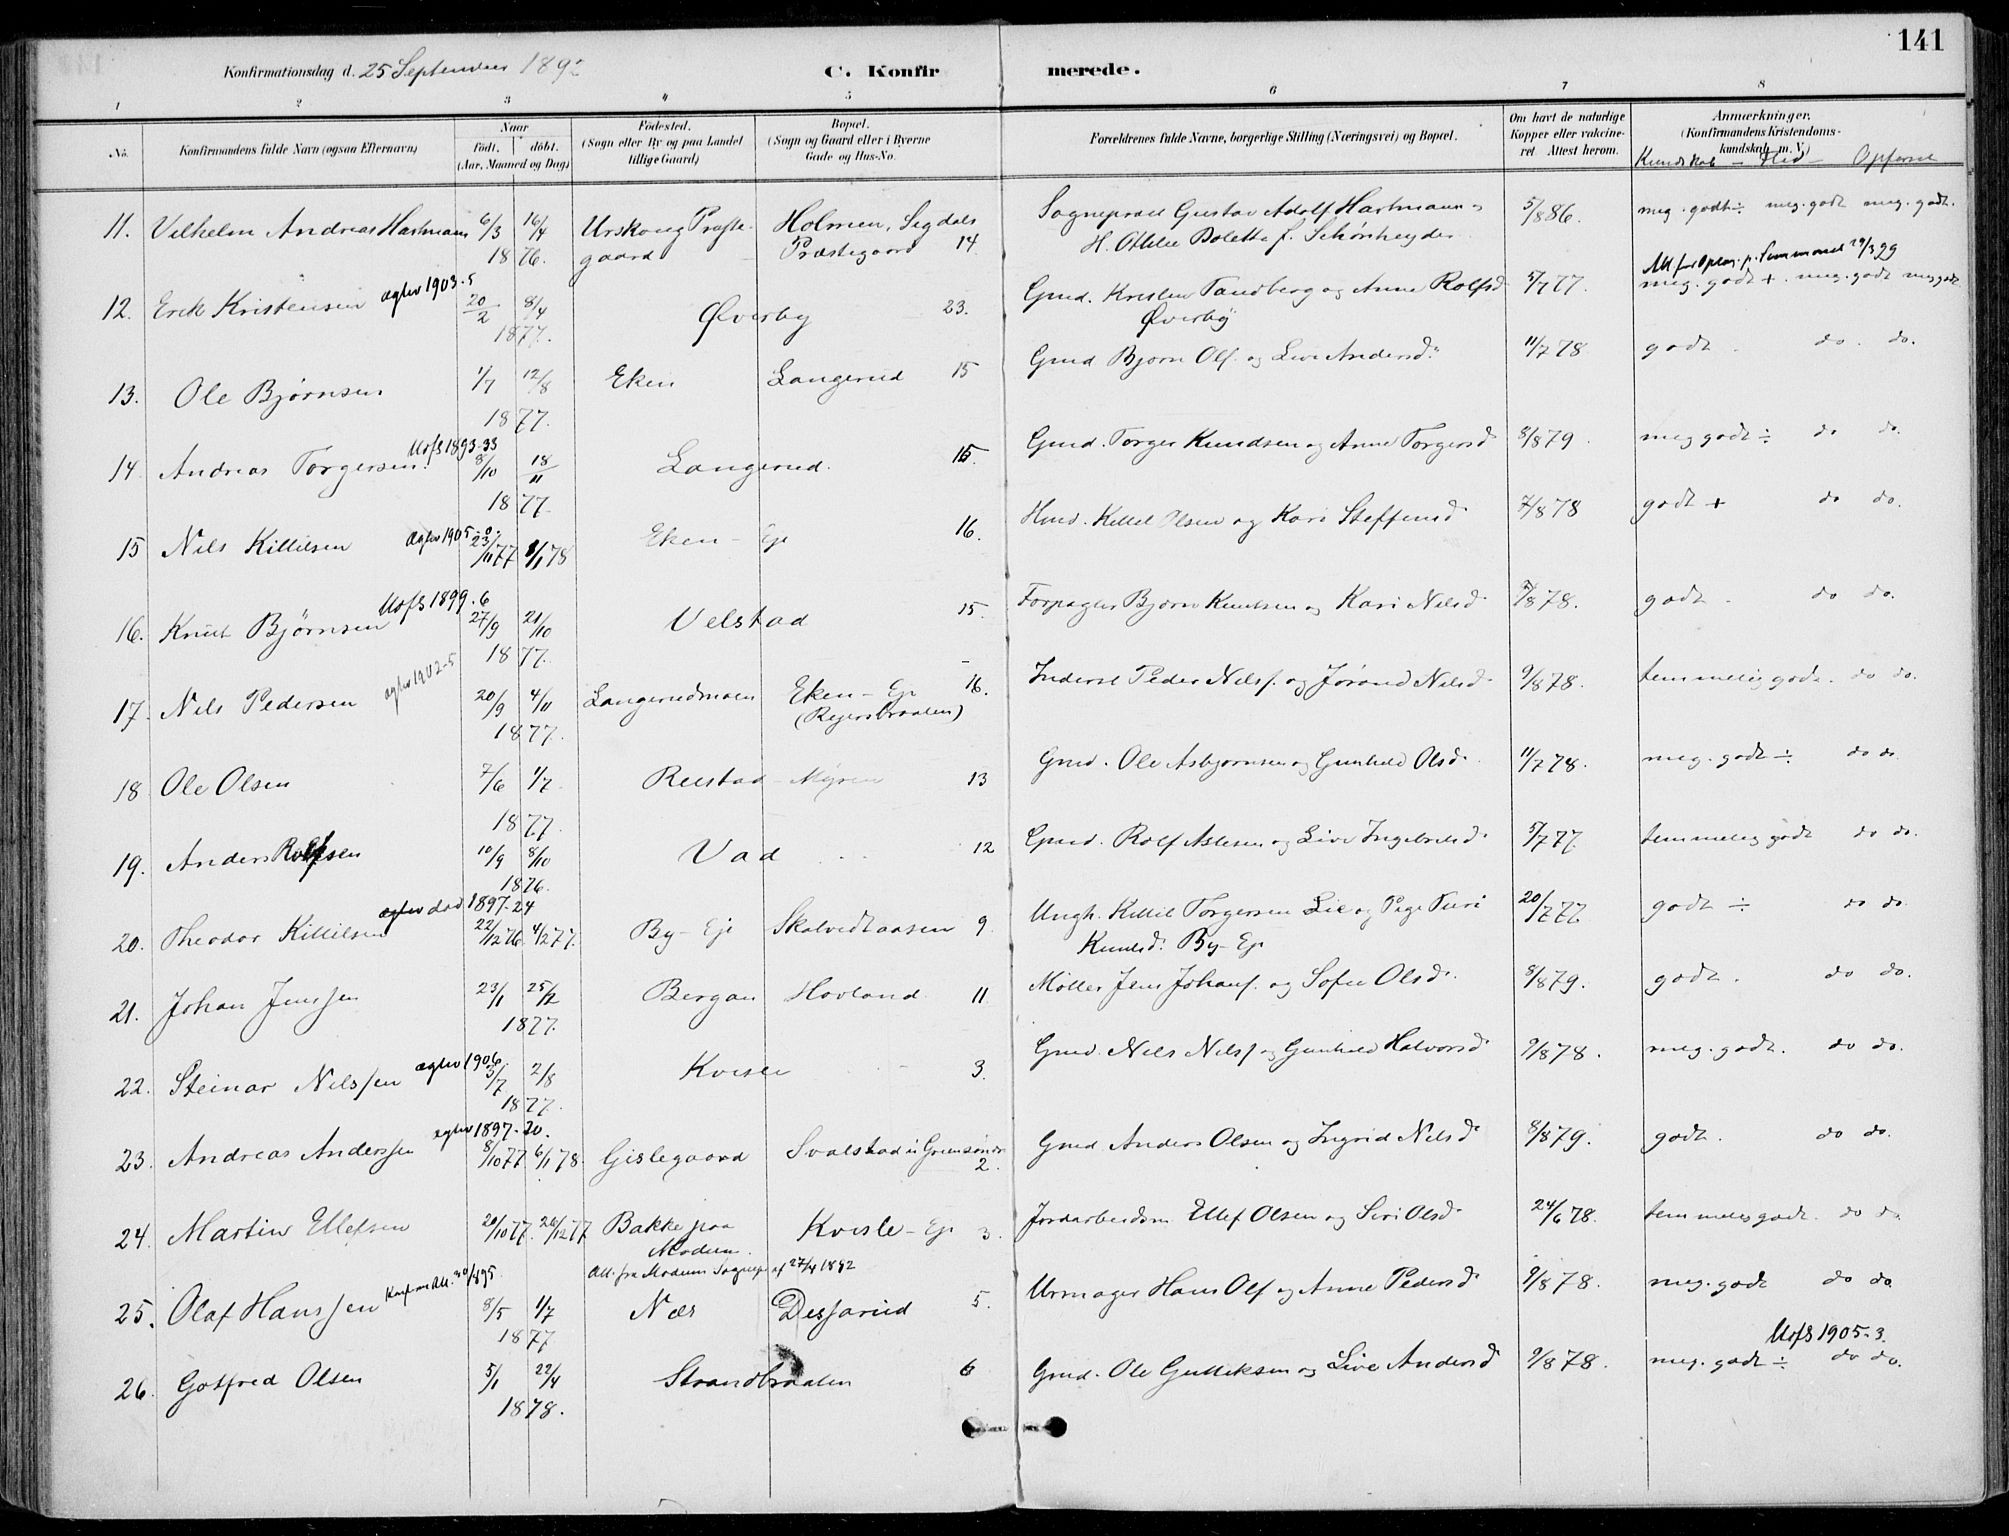 141
Konfirmationsdag d. 25 September 1892
C. Konfirmerede.
1 2 3 4 5 6 7 8
No.
Konfirmandens fulde Navn (ogsaa Efternavn)
Naar
født. døbt.
(Aar, Maaned og Dag)
Fødested.
(Sogn eller By og paa Landet
tillige Gaard)
Bopæl.
(Sogn og Gaard eller i Byerne
Gade og Hus-No.
Forældrenes fulde Navne, borgerlige Stilling (Næringsvei) og Bopæl.
Om havt de naturlige
Kopper eller vakcine-
ret Attest herom.
Anmærkninger.
(Konfirmandens Kristendoms-
kundskab m. V.)
Kundskab – Flid –
11. Vilhelm Andreas Hartmann 6/3 16/4 Urskoug Præste- Holmen, Sigdals Sognepræst Gustav Adolf Hartmann og 5/8 86. meg. godt ÷ meg. godt meg. godt.
1876. gaard Præstegaard 14 H. Othilie Bolette f. Schønheyder
Att. 29/3 29
12. Erik Kristensen aegtev 1903-5 20/2 8/4 Øverby 23. Gmd. Kristen Tandberg og Anne Rolfsd 5/7 77. meg. godt + meg. godt meg godt
1877. Øverby
13. Ole Bjørnsen 1/7 12/8 Eken Langerud 15 Gmd Bjørn Ols. og Live Andersd. 11/7 78 godt do. do.
1877.
14. Andreas Torgersen Uofs 1893-33 8/10 18/11 Langerud. 15. Gmd. Torger Knudsen og Anne Torgersd 8/8 79. meg godt ÷ do do.
1877
15 Nils Kittilsen aegtev 1905 23/11 77 8/1 78 Eken – Eje 16. Hmd. Kittil Olsen og Kari Steffensd 7/8 78 godt + do do.
16. Knut Bjørnsen Uofs 1899-6 27/9 21/10 Velstad 15. Forpagter Bjørn Knutsen og Kari Nilsd 7/8 78. godt do do.
1877.
17. Nils Pedersen aegtev 1902-5 20/9 4/11 Langerudmoen Eken – Eje 16. Inderst Peder Nilss. og Jørand Nilsd 9/8 78. temmelig godt. do do.
1877. (Reiersbraaten)
18 Ole Olsen 7/6 1/7 Reistad – Myren 13 Gmd. Ole Asbjørnsen og Gunhild Olsd. 11/7 78. meg. godt ÷ do do.
1877.
19. Anders Rolfsen 10/9 8/10 Vad 12 Gmd. Rolf Aslesen og Live Ingebretsd 5/7 77. temmelig godt do do.
1876.
20. Theodor Kittilsen død 1897-24 22/12 76 4/2 77. By – Eje Skalvedtaasen 9. Ungk. Kittil Torgersen Lie og Pige Turi 20/7 77. godt ÷ do do.
Knutsd. By – Eje
21. Johan Jenssen 23/1 25/2 Bergan Hovland 11 Møller Jens Johans. og Sofie Olsd. 8/8 79. godt. do do.
1877.
22. Steinar Nilssen aegtev 1906 5/7 2/8 Kvisle 3. Gmd. Nils Nilss. og Gunhild Halvorsd 9/8 78. meg. godt. do do.
1877.
23. Andreas Anderssen aegtev 1897-20. 8/10 77 6/1 78. Gislegaard Svalstad i 2. Gmd Anders Olsen og Ingrid Nilsd 8/8 79. godt. do do.
24. Martin Ellefsen 20/10 77. 26/12 77 Bakke paa Kvisle – Eje 3. Jordarbeidsm. Ellef Olsen og Siri Olsd 24/6 78. temmelig godt. do do.
Modum.
Att. fra Modum Sognepr. af 27/4 1892
25. Olaf Hanssen 8/5 1/7 Næs Desjarud 5. Urmager Hans Ols. og Anne Pedersd 9/8 78. meg. godt do do
1877
Uofs 1905-3.
26. Gotfred Olsen 5/1 22/4 Strandbraaten 6 Gmd. Ole Gulliksen og Live Andersd 9/8 78. meg. godt ÷ do do.
1878.